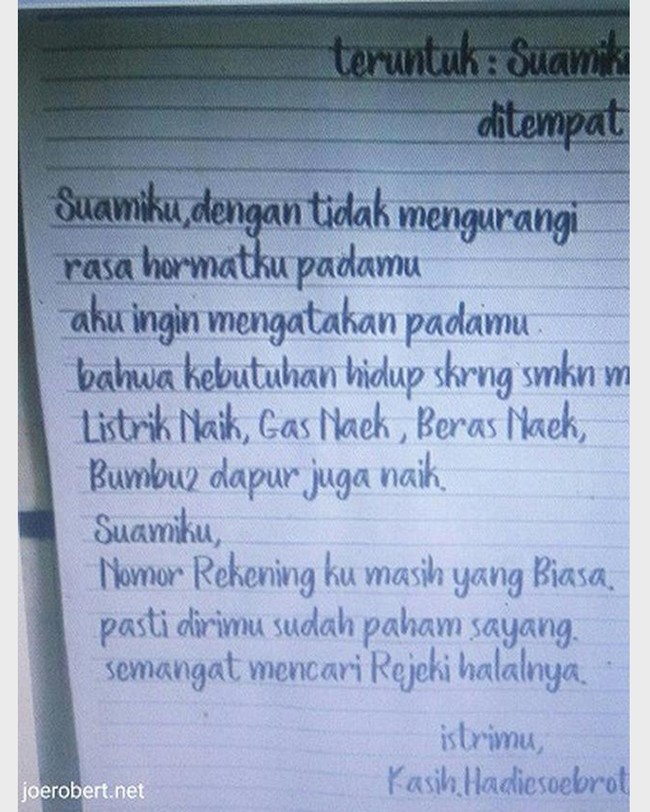 teruntuk : Suamik
ditempat
Suamiku, dengan tidak mengurangi
rasa hormatku padamu
aku ingin mengatakan padamu.
bahwa kebutuhan hidup skrng smkn m
Listrik Naik, Gas Naek, Beras Naek,
Bumbu2 dapur juga naik.
Suamiku,
Nomor Rekening ku masih yang Biasa.
pasti dirimu sudah paham sayang.
semangat mencari Rejeki halalnya.
istrimu,
Kasih.Hadiesoebrot
joerobert.net